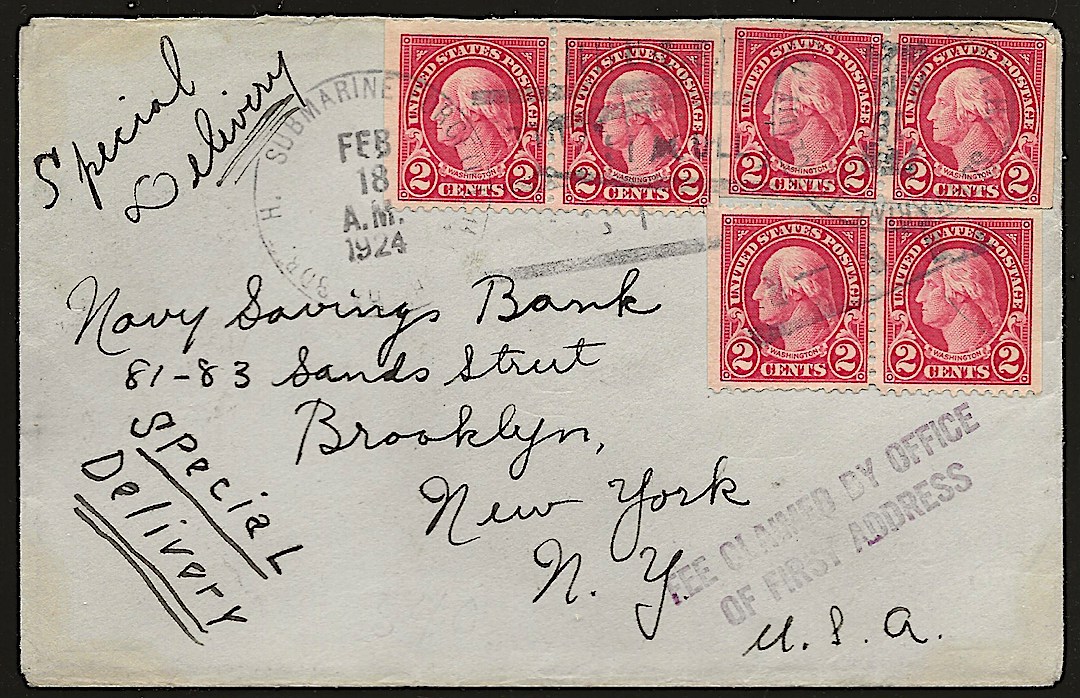 Special
Delivery
H. SUBMARINE
FEB
18
A.M.
1924
UNITED STATES POSTAGE
WASHINGTON
2 CENTS 2
UNITED STATES POSTAGE
WASHINGTON
2 CENTS 2
UNITED STATES POSTAGE
WASHINGTON
2 CENTS 2
UNITED STATES POSTAGE
WASHINGTON
2 CENTS 2
UNITED STATES POSTAGE
WASHINGTON
2 CENTS 2
UNITED STATES POSTAGE
WASHINGTON
2 CENTS 2
Navy Savings Bank
81-83 Sands Street
Brooklyn,
New York
N. Y.
U. S. A.
Special
Delivery
FEE CLAIMED BY OFFICE
OF FIRST ADDRESS